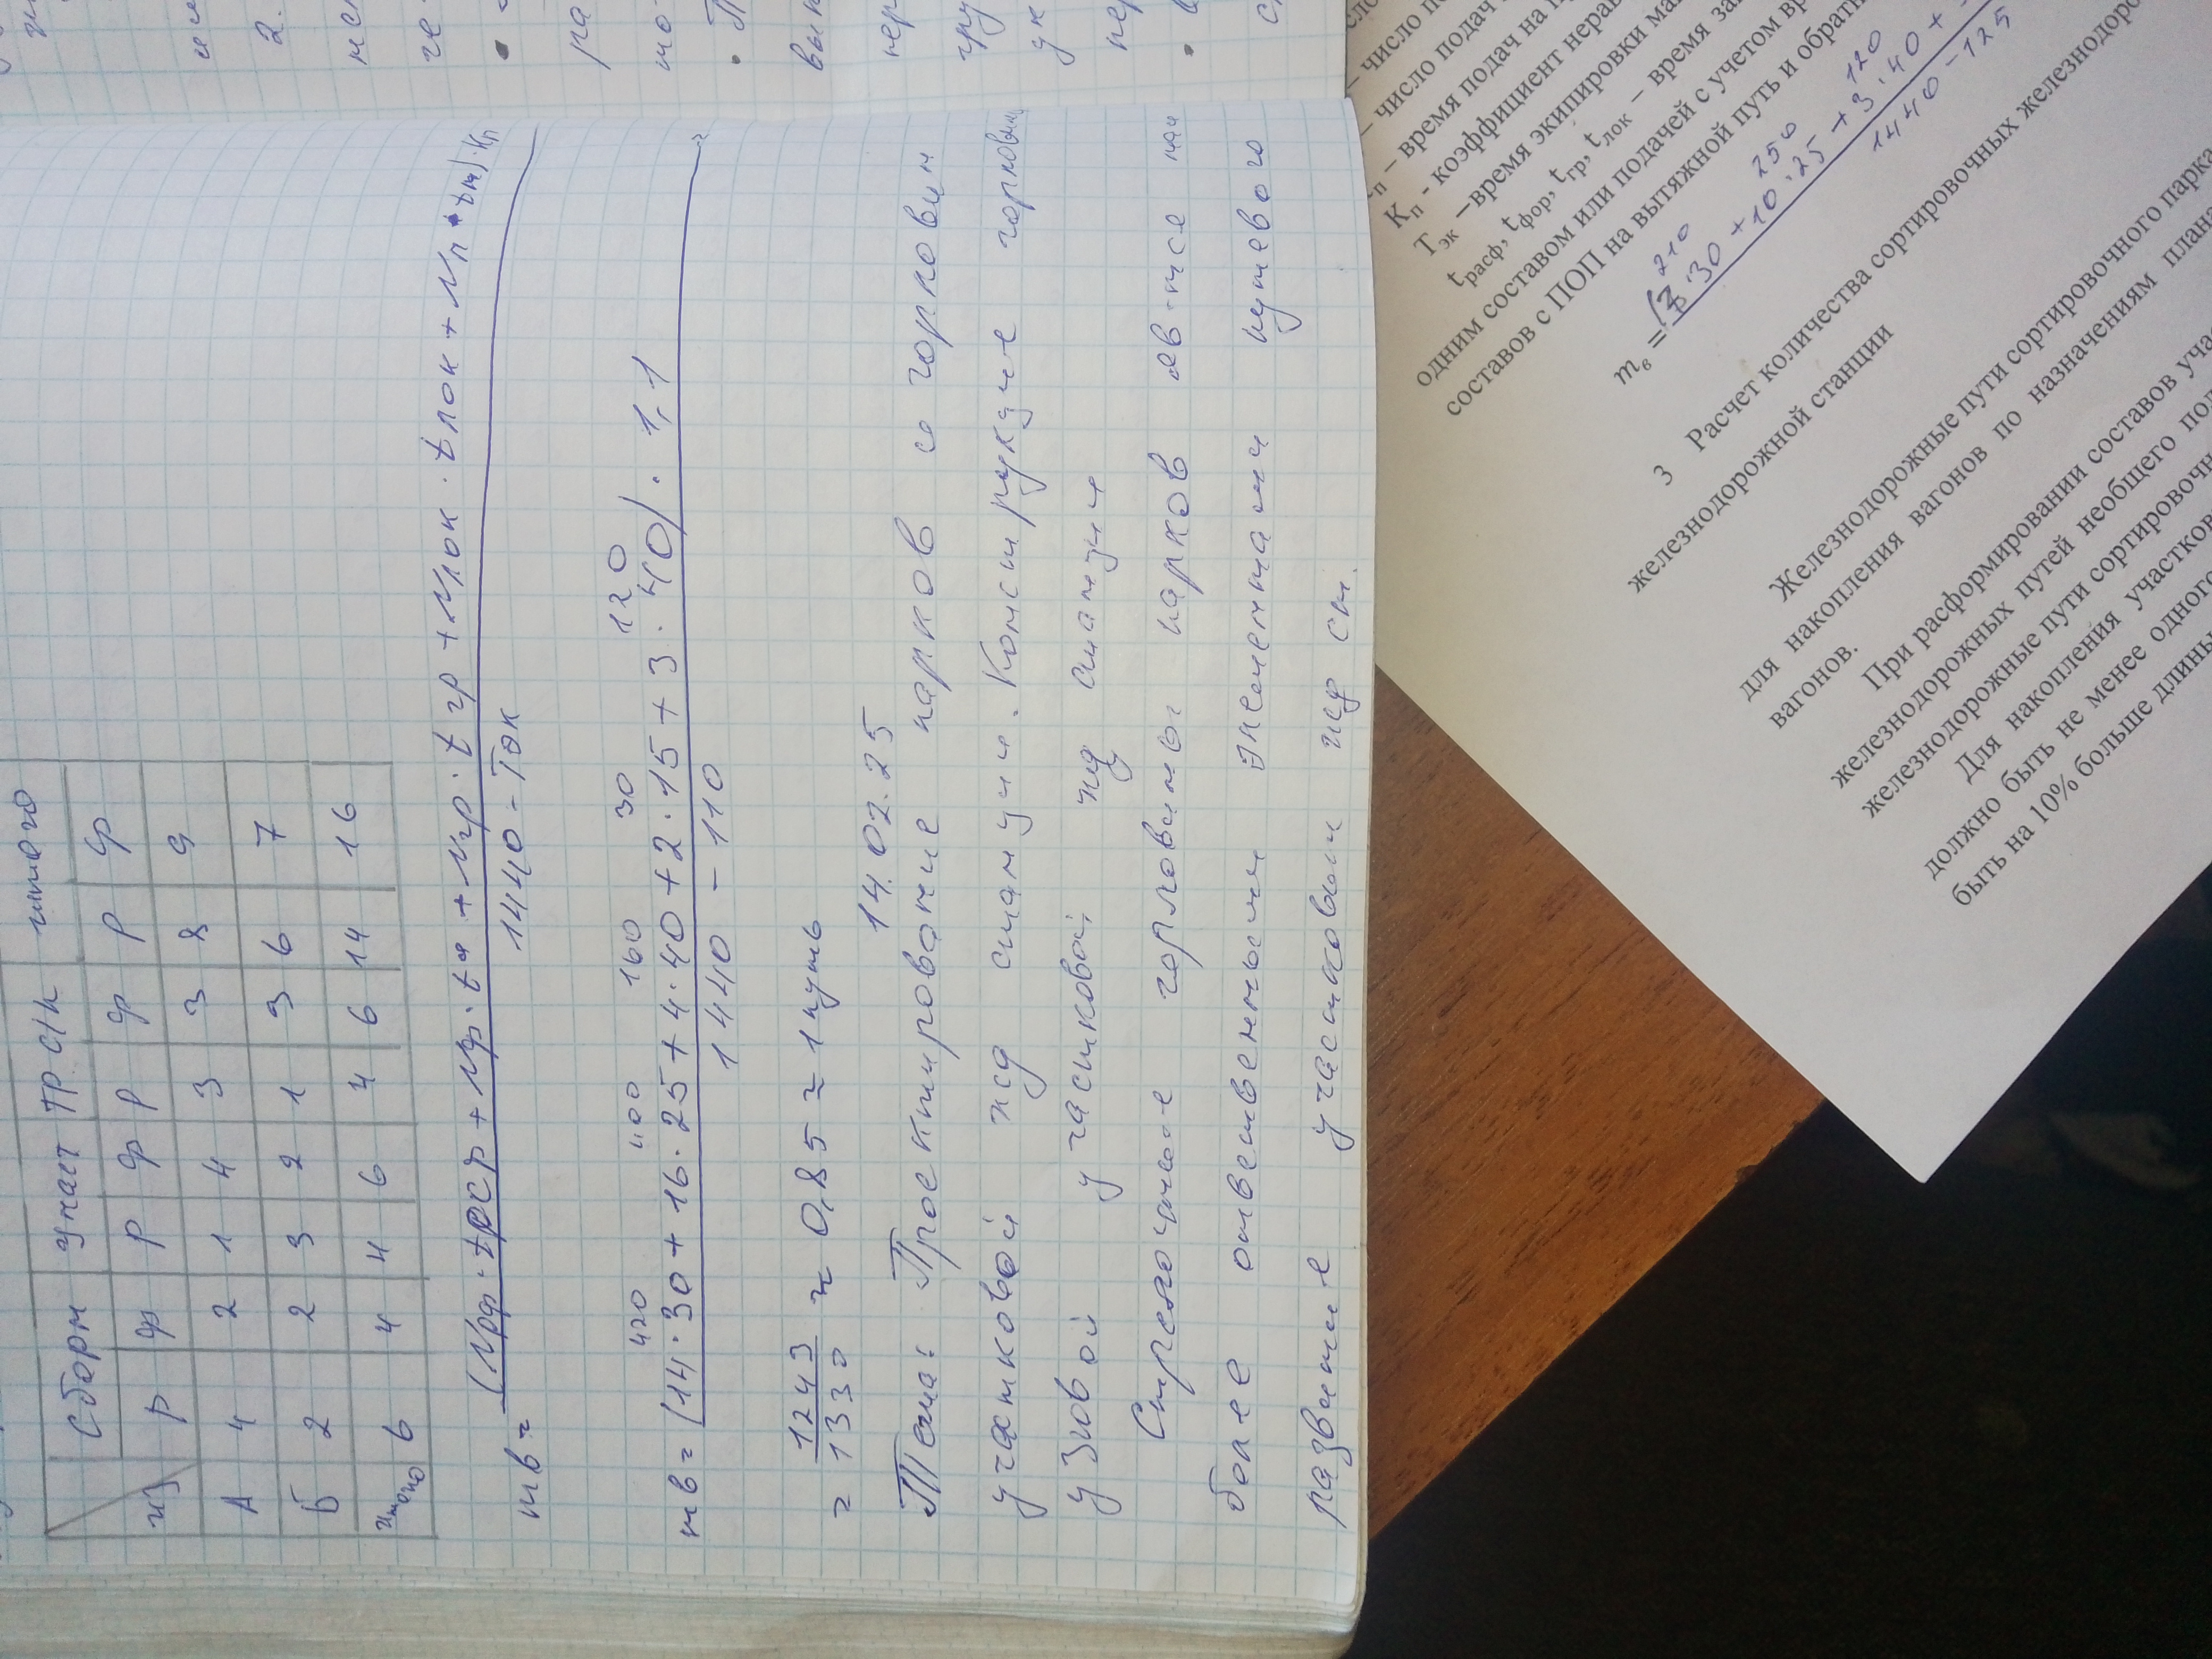 Сборн Участ Тр с/п итого
из р ф р ф р ф р ф
А 4 2 1 4 3 3 8 9
Б 2 2 3 2 1 3 6 7
итого 6 4 4 6 4 6 14 16
mв = (Nрф·tрсф + Nф·tф + Nгр·tгр + Nлок·tлок + Nп·tп)·Кп
1440 - Tэк
420 400 160 30 120
mв = (14·30 + 16·25 + 4·40 + 2·15 + 3·40)·1,1 =
1440 - 110
= 1243 ≈ 0,85 ≈ 1 путь
1330
14.02.25
Тема: Проектирование парков со горловин
участковой жд станции. Конструкция горловины
узловой участковой жд станции
Стрелочные горловины парков яв-тся наи
более ответственным элементами путевого
развития участковых жд ст.
– число подач
– время подач на
Кп - коэффициент нерав
Тэк – время экипировки
tрасф, tфор, tгр, tлок – время
одним составом или подачей с учетом
составов с ПОП на вытяжной путь и обратно
210 250 120
mв = (7·30 + 10·25 + 3·40 +
1440 - 125
3 Расчет количества сортировочных железнодоро
железнодорожной станции
Железнодорожные пути сортировочного парка
для накопления вагонов по назначениям план
вагонов.
При расформировании составов уча
железнодорожных путей необщего пол
железнодорожные пути сортировочн
Для накопления участков
должно быть не менее одного
быть на 10% больше длины